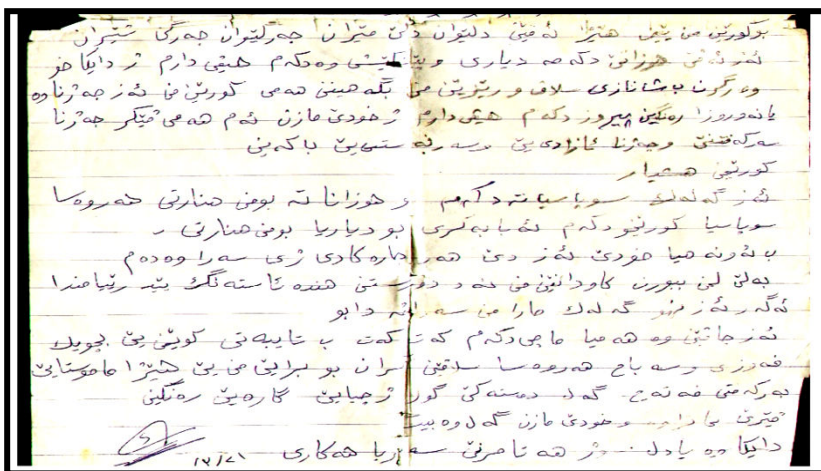 بوکورێن من یێن هێژا ئەڤێن دلێوان دلێ مێران جەرگێوان جەرگێ شێران
ئەز ئەڤێ هوزانێ دکەمە دیاری و پێشکێشی وە دکەم هیڤی دارم ژ دایکا خو
وەرگرن ب شانازی سلاڤ و رێزێن من بگەهینن هەمی کورێن من ئەز جەژنا وە
یا نەوروزا رەنگین پیروز دکەم هیڤی دارم ژ خودێ مازن ئەم هەمی ڤێکرا جەژنا
سەرکەفتنێ وجەژنا ئازادی یێ وسەربەستی یێ با کەین
کورێن هەڤیار
ئەز گەلەك سوپاسیاتە دکەم و هوزاناتە بومن هنارتی هەروەسا
سوپاسیا کورێخو دکەم ئەبابەکری بو دیاریا بومن هنارتی
ب ئەونە هیا خودێ ئەز دێ هەر جارەکادی ژی سەرا وەدەم
بەلێ لێ ببورن کاودانێن من نە د دورستن هندە ئاستەنگ یێد رێیامندا
ئەگەر ئەز گەلەك جارا من سەرا تە دابو
ئەز چاڤێن وە هەمیا ماچی دکەم کەت کەت ب تایبەتی کوێن یێ بچویك
فەوزی وسەباح هەروەسا سلاڤێن بو برایێ من یێ هێژا ماموستایێ
بەرکەڤتی فەتاح گەل دەستەکێ گول ژ چیایێ گارەیێ رەنگینی
و خودێ مازن گەل وە بیت
دایکا وە یا دل هەکاری
١٢/٢١